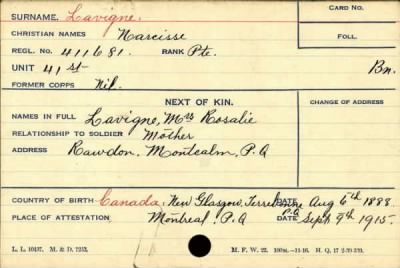 SURNAME. Lavigne. CARD NO.
CHRISTIAN NAMES Narcisse FOLL.
REGL. NO. 411681. RANK Pte.
UNIT 41st Bn.
FORMER CORPS Nil.
NEXT OF KIN. CHANGE OF ADDRESS
NAMES IN FULL Lavigne, Mrs Rosalie
RELATIONSHIP TO SOLDIER Mother
ADDRESS Rawdon, Montcalm, P.Q
COUNTRY OF BIRTH Canada, New Glasgow, Terrebonne P.Q DATE Aug 6th 1888.
PLACE OF ATTESTATION Montreal, P.Q DATE Sept 9th 1915.
L. L. 10497. M. & D. 7252. M. F. W. 22. H. Q. 17